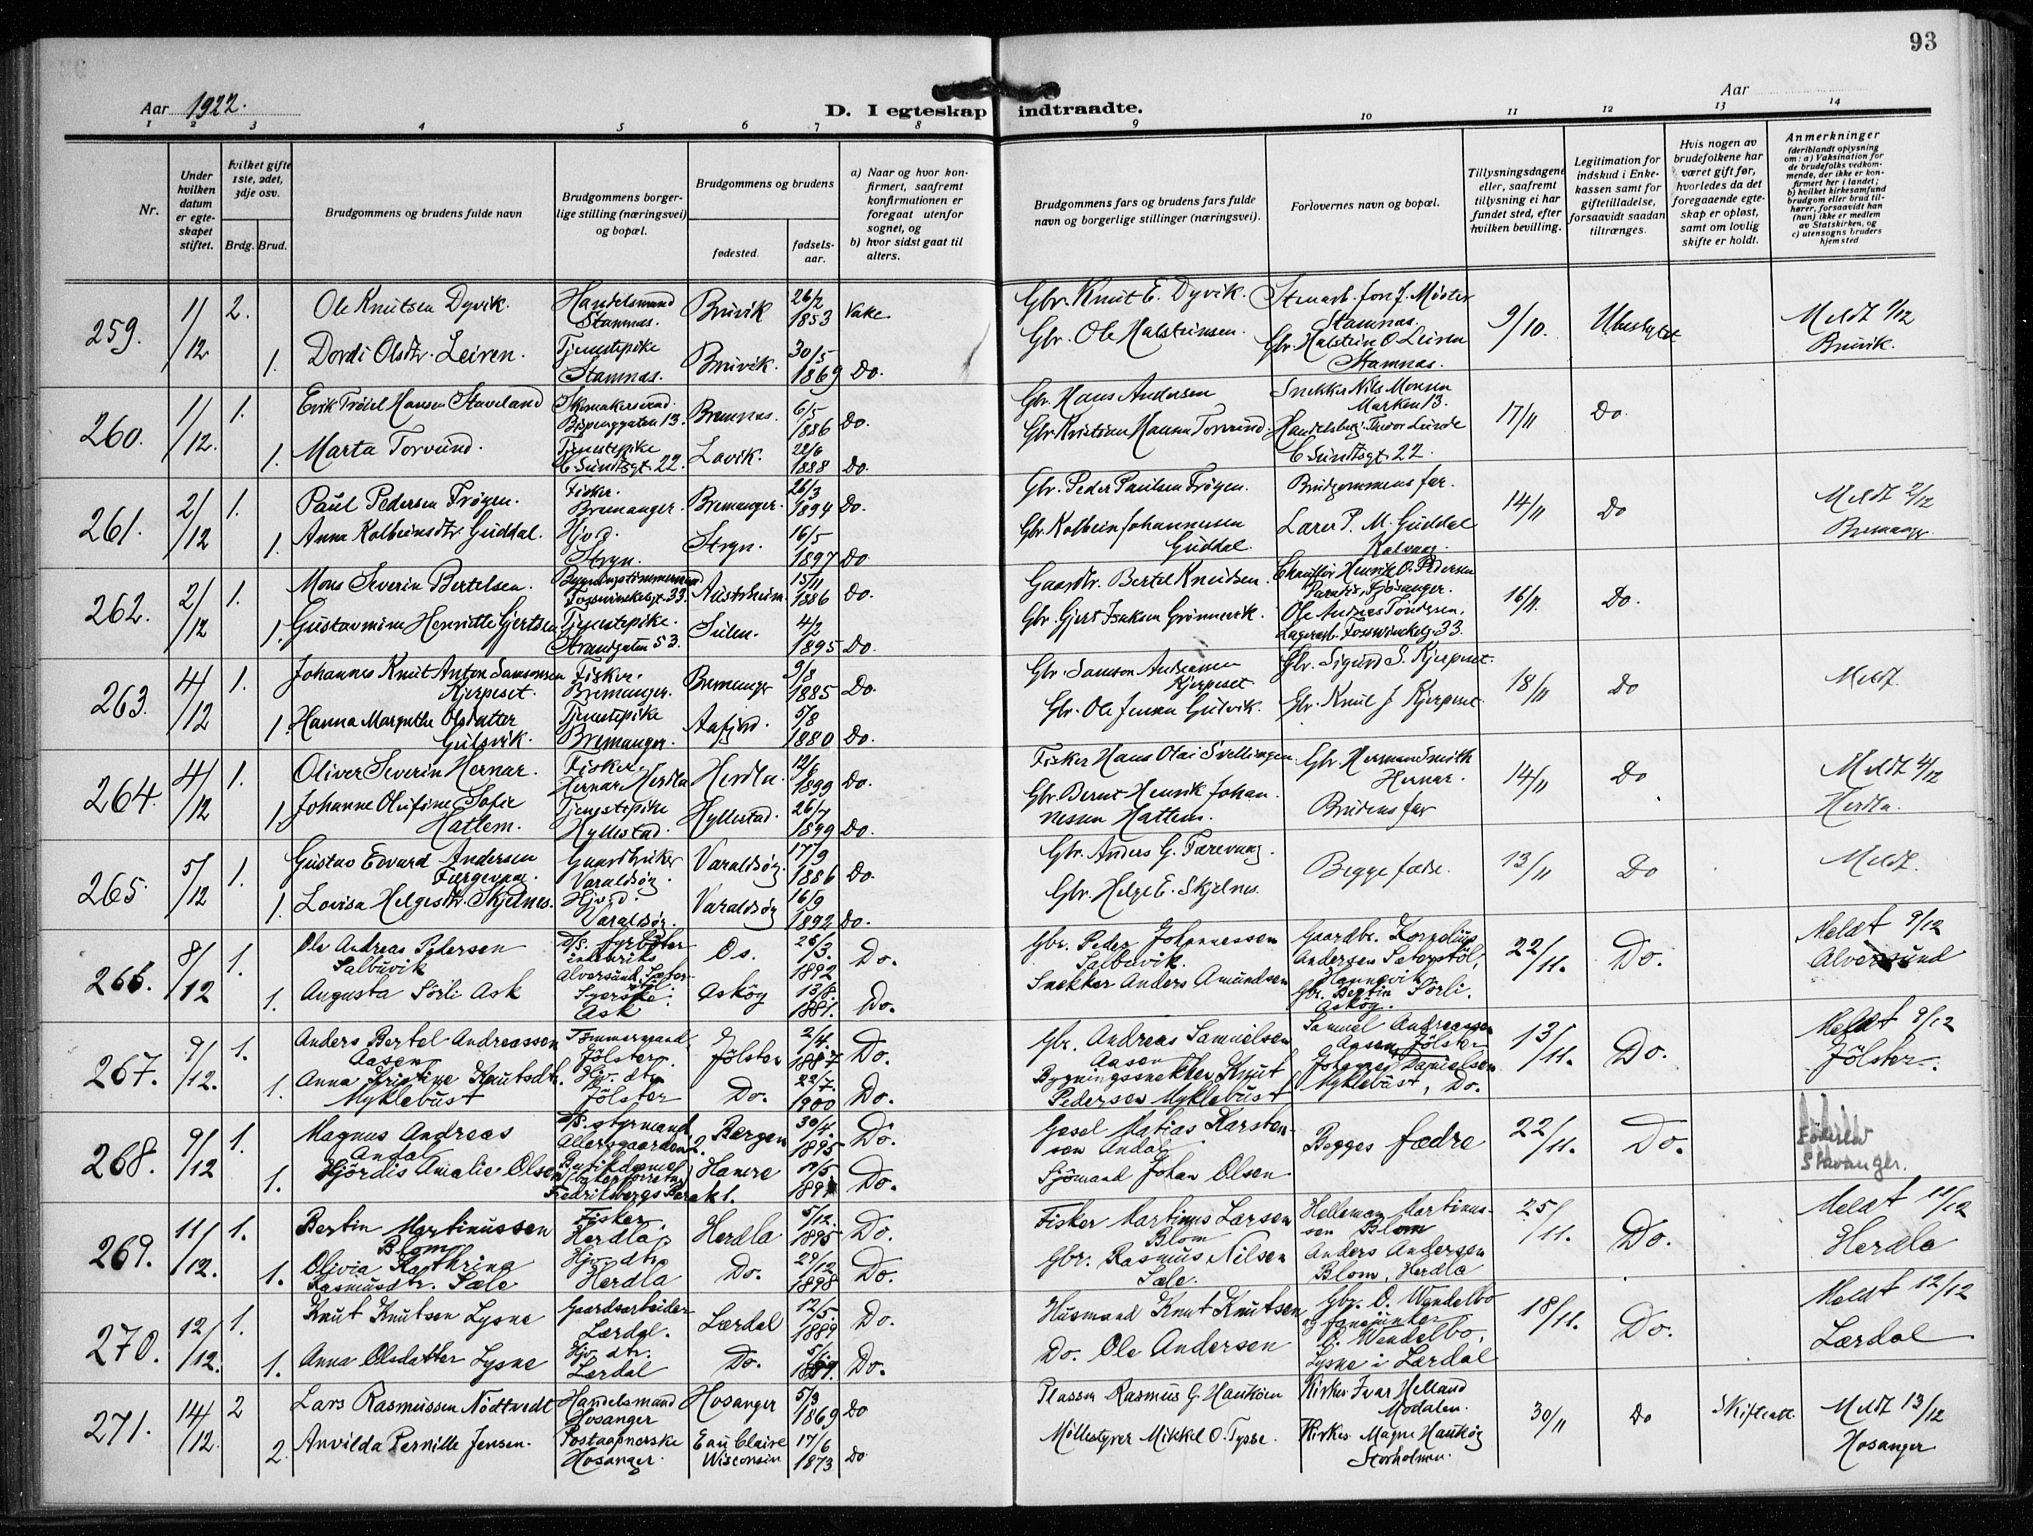 93
Aar 1922.
D. I egteskap indtraadte.
Aar
1 2 3 4 5 6 7 8 9 10 11 12 13 14
Nr.
Under hvilken datum er egteskapet stiftet.
Hvilket gifte 1ste, 2det, 3dje osv.
Brdg. Brud.
Brudgommens og brudens fulde navn
Brudgommens borgerlige stilling (næringsvei) og bopæl.
Brudgommens og brudens
fødested.
fødselsaar.
a) Naar og hvor konfirmert, saafremt konfirmationen er foregaat utenfor sognet, og
b) hvor sidst gaat til alters.
Brudgommens fars og brudens fars fulde navn og borgerlige stillinger (næringsvei).
Forlovernes navn og bopæl.
Tillysningsdagene eller, saafremt tillysning ei har fundet sted, efter hvilken bevilling.
Legitimation for indskud i Enkekassen samt for giftetilladelse, forsaavidt saadan tiltrænges.
Hvis nogen av brudefolkene har været gift før, hvorledes da det foregaaende egteskap er opløst, samt om lovlig skifte er holdt.
Anmerkninger (deriblandt oplysning om: a) Vaksination for de brudefolks vedkommende, der ikke er konfirmert her i landet; b) hvilket kirkesamfund brudgom eller brud tilhører, forsaavidt han (hun) ikke er medlem av Statskirken, og c) utensogns bruders hjemsted
259. 1/12 2. Ole Knutsen Dyvik. Handelsmand Stamnas. Bruvik 26/2 1853 Gbr. Knut E. Dyvik. Stamnas. 9/10. Meldt 1/12 Bruvik.
1. Dordi Olsdtr. Leiren. Tjenestepike Stamnas. Bruvik. 30/5 1869 Do. Gbr. Ole Halsteinsen. Gbr. Halstein O. Leiren Stamnas.
260. 1/12. 1. Hansen Staveland 13. Bremnas. 6/5 1886 Do. Gbr. Hans Andersen Snekker Nils Monsen Marken 13. 17/11 Do.
1. Marta Torvund. Tjenestepike C Sundtsgt. 22. Lavik. 22/6 1888 Do. C Sundtsgt. 22.
261. 2/12 1. Paul Pedersen Frøyen. Fisker. Bremanger. Bremanger. 26/3 1894 Do. Gbr. Peder Paulsen Frøyen. Brudgommens far. 14/11 Do Meldt 2/12 Bremanger
1. Anna Kolbeinsdtr. Guddal. Stryn. Stryn. 16/5 1897 Do Gbr. Kolbein Johannessen Guddal. Lærer P. M. Guddal Kalvaag.
262. 2/12 1. Mons Severin Bertelsen. 33. Austrheim. 15/11 1886 Do. Bertel Knudsen. Chauffør Henrik O. Pedersen Paradis, Fjøsanger. 16/11. Do.
1. Gustavmine Henrikke Gjertsen Tjenestepike. Strandgaten 53. Sulen. 4/2 1895 Do. Ole Andreas Tøndesen, 33.
263. 4/12 1. Johannes Knut Anton Samsonsen Kjerpeset. Fisker. Bremanger. Bremanger 9/8 1885 Do. Gbr. Samson Andersen Kjerpeset Gbr. Sigurd S. Kjerpeset. 18/11 Do Meldt.
1. Hanna Margrethe Olsdatter Gulsvik. Tjenestepike Bremanger. Aafjord. 5/8 1880 Do. Gbr. Ole Jensen Gulsvik. Gbr. Knut J Kjerpeset.
264. 4/12 1. Oliver Severin Hernar. Fisker. Hernar Herdla Herdla 1899 Do. Fisker Hans Olai Svellingen Gbr. Hermand Smith Hernar. 14/11 Do Meldt 4/12 Herdla.
1. Johanne Olufine Sofie Hatlem. Tjenestepike Hyllestad. Hyllestad. 26/7 1899 Do. Gbr. Bernt Henrik Johannessen Hatlem. Brudens far
265. 5/12 1. Gustav Edvard Andersen Færgevaag. Gaardbruker Varaldsøy. Varaldsøy. 17/9 1886 Do. Gbr. Anders G. Færevaag. Begge fædre. 13/11 Do Meldt.
1. Lovisa Helgesdtr. Skjelnes. Varaldsøy. Varaldsøy 16/9 1892 Do. Gbr. Helge E. Skjelnes.
266. 8/12 1. Ole Andreas Pedersen Salbuvik D/S. fyrbøter Alversund Os. 1892 Do. Gbr. Peder Johannessen Salbuvik. Gaardbr. Kornelius Andersen 22/11. Do. Meldt 9/12 Alversund
1. Augusta Sörli Ask Syerske. Ask Asköy 13/8. 1881. Do. Snekker Anders Amundsen Gbr. Bertin Sörli. Asköy.
267. 9/12. 1. Anders Bertel Andreassen Aasen Tømmermand Jölster. Jölster 2/4. 1887 Do. Gbr. Andreas Samuelsen Aasen Samuel Andreassen Aasen, Jölster 13/11. Do. Meldt 9/12 Jölster.
1. Anna Kristine Knutsdtr. Myklebust Hjv. dtr. Jölster Do. 22/7. 1900 Do. Bygningssnekker Knut Pedersen Myklebust Johannes Danielsen Myklebust, Do.
268. 9/12 1. Magnus Andreas Andal D/S. styrmand Bergen 30/4. 1895 Do. Matias Karstensen Andal Begges fædre 22/11. Do. Stavanger.
1. Hjördis Amalie Olsen Hamre Do. Sjömand Johan Olsen
269. 11/12. 1. Bertin Martinussen Blom Fisker, Herdla. Herdla 5/12. 1895 Do. Fisker Martinus Larsen Blom Martinussen Blom 25/11. Do. Meldt 11/12 Herdla
1. Olivia Kathrina Rasmusdtr. Sæle Hjv. dtr. Herdla Do. 29/12 1898 Do. Gbr. Rasmus Nilsen Sæle. Anders Andersen Blom, Herdla
270. 12/12. 1. Knut Knutsen Lysne Gaardsarbeider Lærdal. Lærdal 12/5. 1889 Do. Husmand Knut Knutsen Gbr. O. Wendelbo og fanejunker O. Wendelbo, 18/11. Do. Meldt 12/12 Lærdal
1. Anna Olsdatter Lysne Hjv. dtr. Lærdal Do. Do. Do. Ole Andersen Lysne i Lærdal
271. 14/12. 2 Lars Rasmussen Nödtvedt Handelsmand Hosanger Hosanger 5/3 1869 Do Rasmus G. Kirkes. Ivar Helland Modalen. 30/11 Do Skifteatt. Meldt 13/12 Hosanger
2. Anvilda Pernille Jensen. Postaapnerske Hosanger. Eau Claire Wisconsin 17/6 1873 Do Möllestyrer Mikkel O. Tysse. Kirkes. Magne Storholmen.